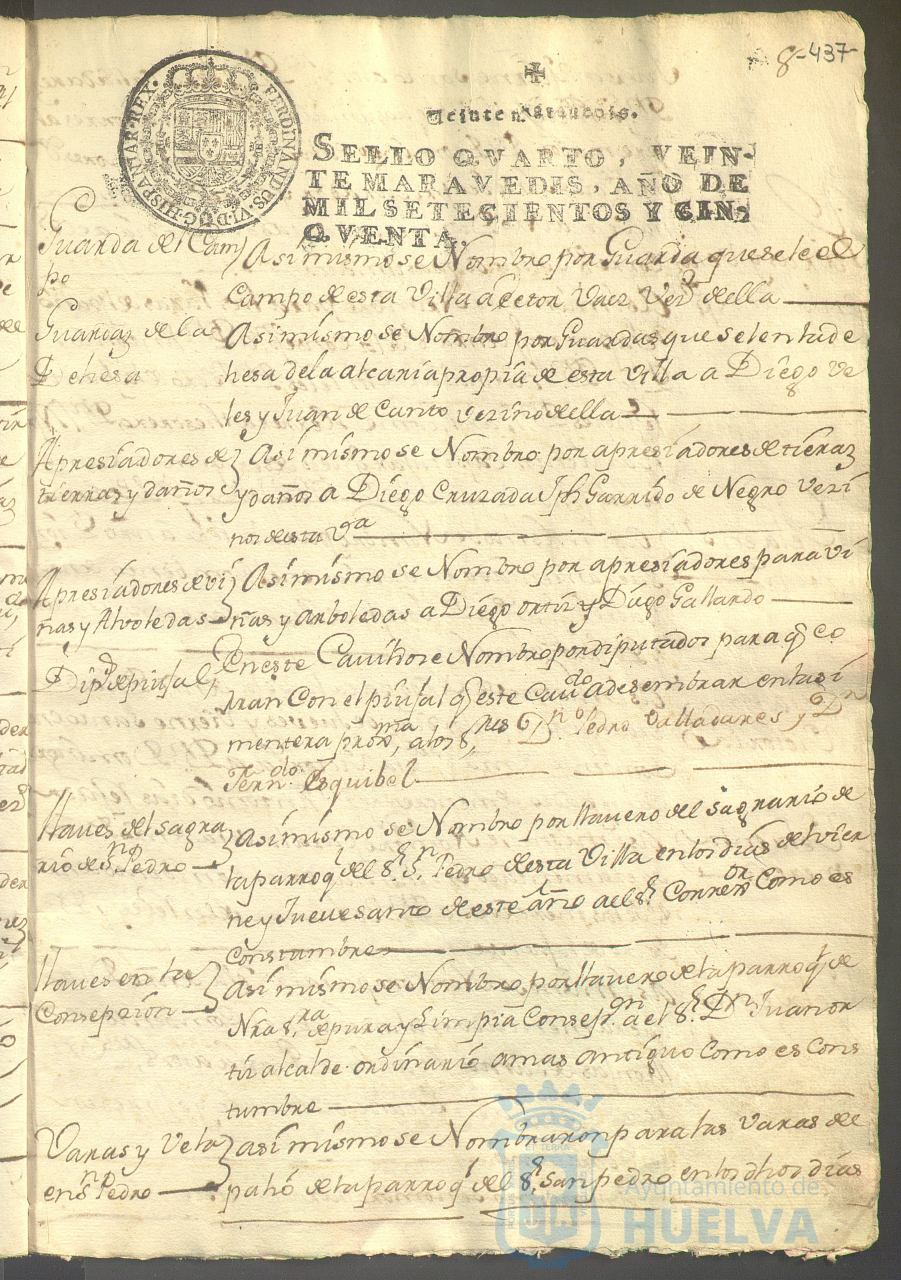 8-437
FERDINANDUS·VI·D·G·HISPANIAR·REX·
Veinte maravedis.
SELLO QVARTO, VEIN-
TE MARAVEDIS, AÑO DE
MIL SETECIENTOS Y CIN-
QVENTA.
Guarda del Cam
po
Asimismo se Nombro por Guarda que sele el
Campo de esta Villa a Vaez Vez.º della
Guardaz de la
Dehesa
Asimismo se Nombro por Guardas que selen la de
hesa de la alcaria propia de esta Villa a Diego Ve
les y Juan de Canto vezino della
Apresiadores de
tierras y daños
Asimismo se Nombro por apresiadores de tieraz
y daños a Diego Cruzada Jph Garrido de Negro Vezi
nos de esta V.ª
Apresiadores de vi
ñas y Alboledas
Asimismo se Nombro por apresiadores para vi
ñas y arboledas a Diego ortiz y Diego Gallardo
Dip.do de piujal
En este Cavildo se Nombro por diputados para q̃ co
rran Con el piujal q̃ este Cav.do a de sembrar en la si
mentera prox.ma, a los s.res D.n Pedro Valladares y D.n
Fern.do Esquibel
llaves del sagra
rio de S.n Pedro
Asimismo se Nombro por llavero del sagrario de
la parroq.l del S.r S.n Pedro de esta Villa en los dias de vier
ne y Jueve santo de este año a el S.r Correx.or Como es
Constumbre
llaves en la
Consepsion
Asimismo se Nombro por llavero de la parroq.l de
Nra S.ra de pura y Limpia Consep.on a el S.r D.n Juan or
tiz alcalde ordinario a mas antiguo Como es Cons
tumbre
Varas y Vela
en S.n Pedro
asimismo se Nombraron para las Varas de
palio de la parroq.l del S.r San pedro en los dhos dias
Ayuntamiento de
HUELVA